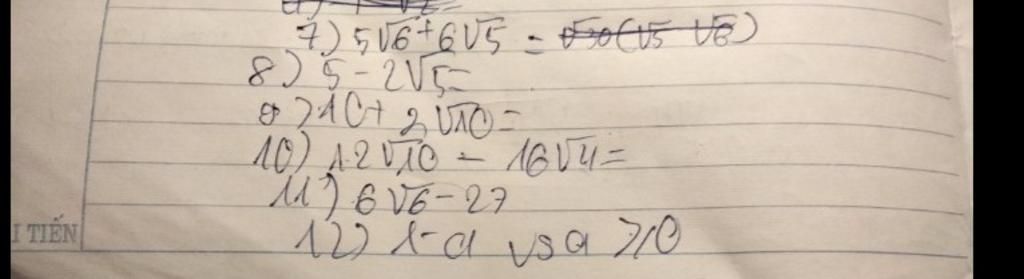 7) 5√6+6√5 = √30(√5 √6)
8) 5-2√5=
9) 10+2√10=
10) 12√10 - 16√4=
11) 6√6-27
12) 1-a với a ≥0
I TIẾN